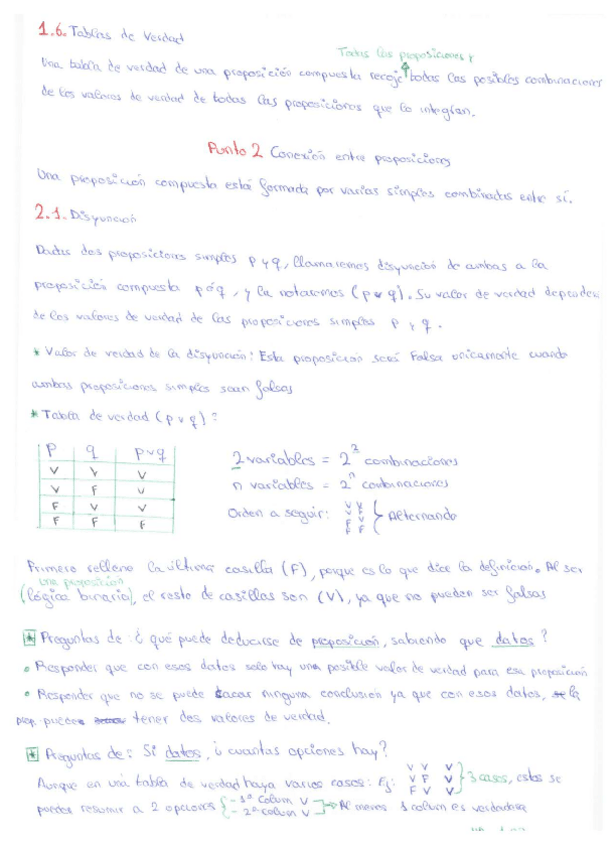 1.6. Tablas de Verdad
Todas las proposiciones y
Una tabla de verdad de una proposición compuesta recoje todas las posibles combinaciones
de los valores de verdad de todas las proposiciones que la integran.
Punto 2 Conexión entre proposiciones
Una proposición compuesta está formada por varias simples combinadas entre sí.
2.1. Disyunción
Dadas dos proposiciones simples p y q, llamaremos disyunción de ambas a la
proposición compuesta p ó q, y la notaremos (p v q). Su valor de verdad dependerá
de los valores de verdad de las proposiciones simples p y q.
* Valor de verdad de la disyunción: Esta proposición será Falsa unicamente cuando
ambas proposiciones simples sean falsas
* Tabla de verdad (p v q):
p q p v q
V V V
V F V
F V V
F F F
2 variables = 2² combinaciones
n variables = 2ⁿ combinaciones
Orden a seguir: V V
V F
F V
F F
} Alternando
Primero relleno la última casilla (F), porque es lo que dice la definición. Al ser
una proposición
(lógica binaria), el resto de casillas son (V), ya que no pueden ser falsas
* Preguntas de: ¿qué puede deducirse de proposición, sabiendo que datos?
• Responder que con esos datos solo hay una posible valor de verdad para esa proposición
• Responder que no se puede sacar ninguna conclusión ya que con esos datos, la
prop. puede tener dos valores de verdad.
* Preguntas de: Si datos, ¿cuantas opciones hay?
Aunque en una tabla de verdad haya varios casos: Ej: V V V
V F V
F V V
} 3 casos, estos se
pueden resumir a 2 opciones { - 1ª Colum V
- 2ª colum V
} → Al menos 1 colum es verdadera